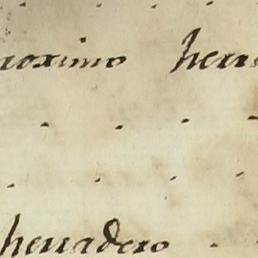 roximo herra
herradero